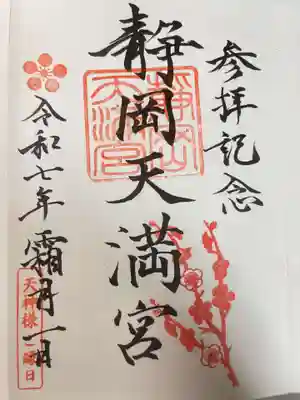 参拝記念
靜岡天満宮
令和七年霜月一日
天神様ご縁日